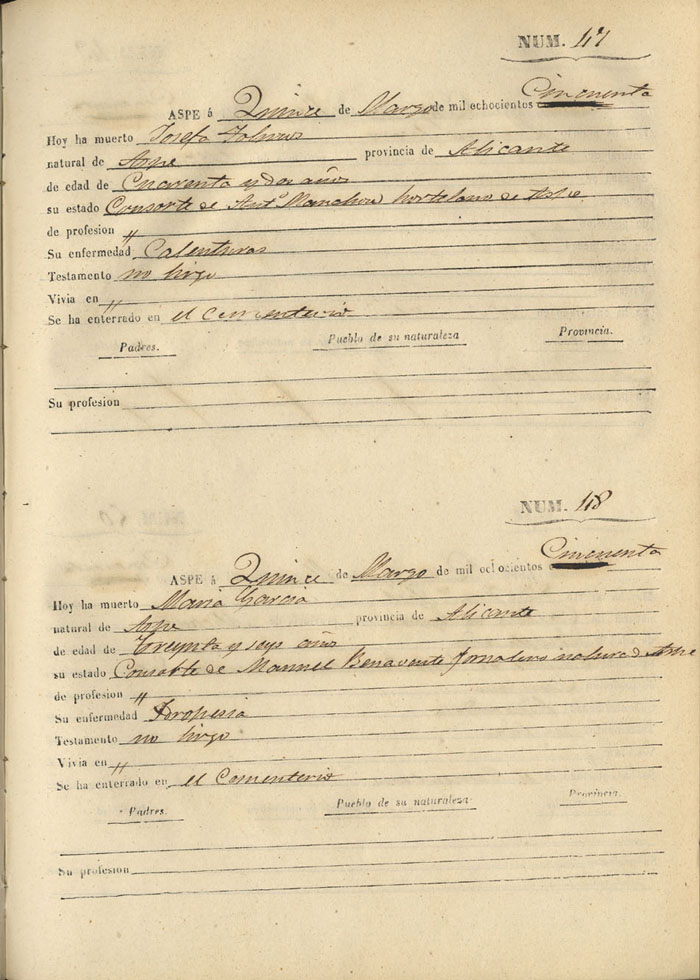 NUM. 47
ASPE á Quinze de Marzo de mil ochocientos Cincuenta
Hoy ha muerto Josefa
natural de Aspe provincia de Alicante
de edad de Cuarenta y dos años
su estado Consorte de Ant.º hortelano de Aspe
de profesion "
Su enfermedad Calenturas
Testamento no hizo
Vivia en "
Se ha enterrado en el Cementerio
Padres. Pueblo de su naturaleza Provincia.
Su profesion
NUM. 48
ASPE á Quinze de Marzo de mil ochocientos Cincuenta
Hoy ha muerto Maria Garcia
natural de Aspe provincia de Alicante
de edad de Treynta y seys años
su estado Consorte de Manuel Benavente Jornalero natural Aspe
de profesion "
Su enfermedad
Testamento no hizo
Vivia en "
Se ha enterrado en el Cementerio
Padres. Pueblo de su naturaleza Provincia.
Su profesion